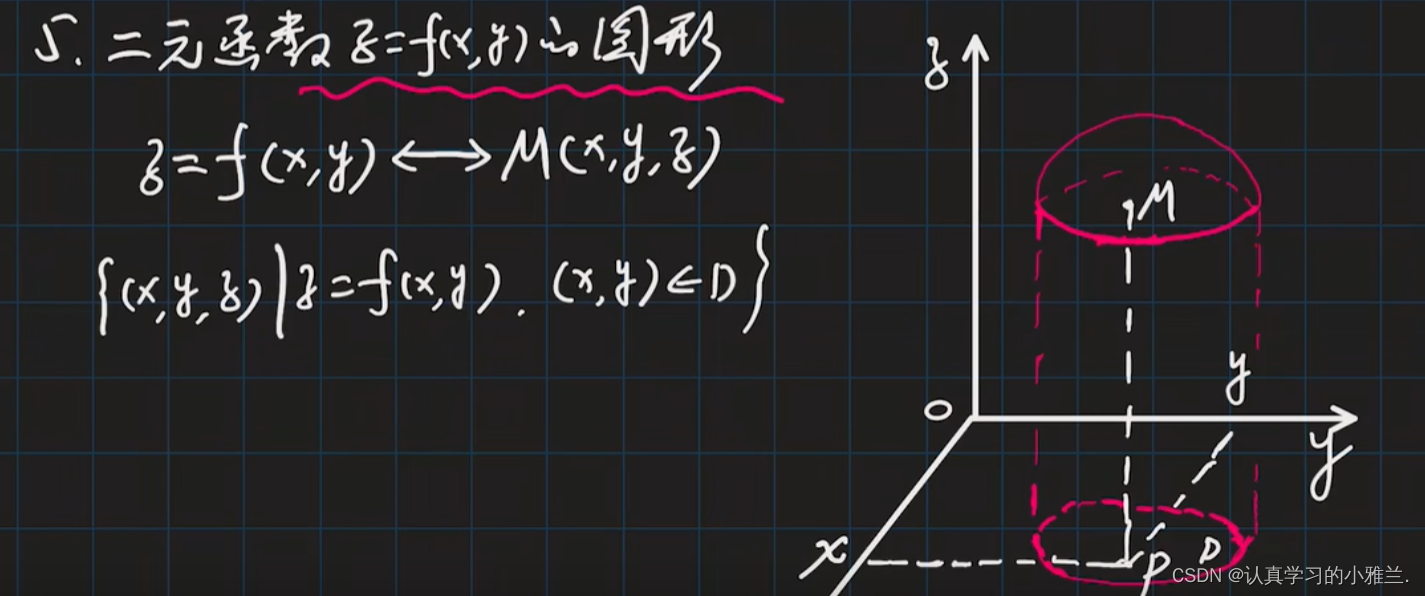 5. 二元函数 z=f(x,y) 的图形
z=f(x,y) ⟷ M(x,y,z)
{(x,y,z)|z=f(x,y). (x,y)∈D}
z
M
y
O
y
x
P
D
CSDN @认真学习的小雅兰.